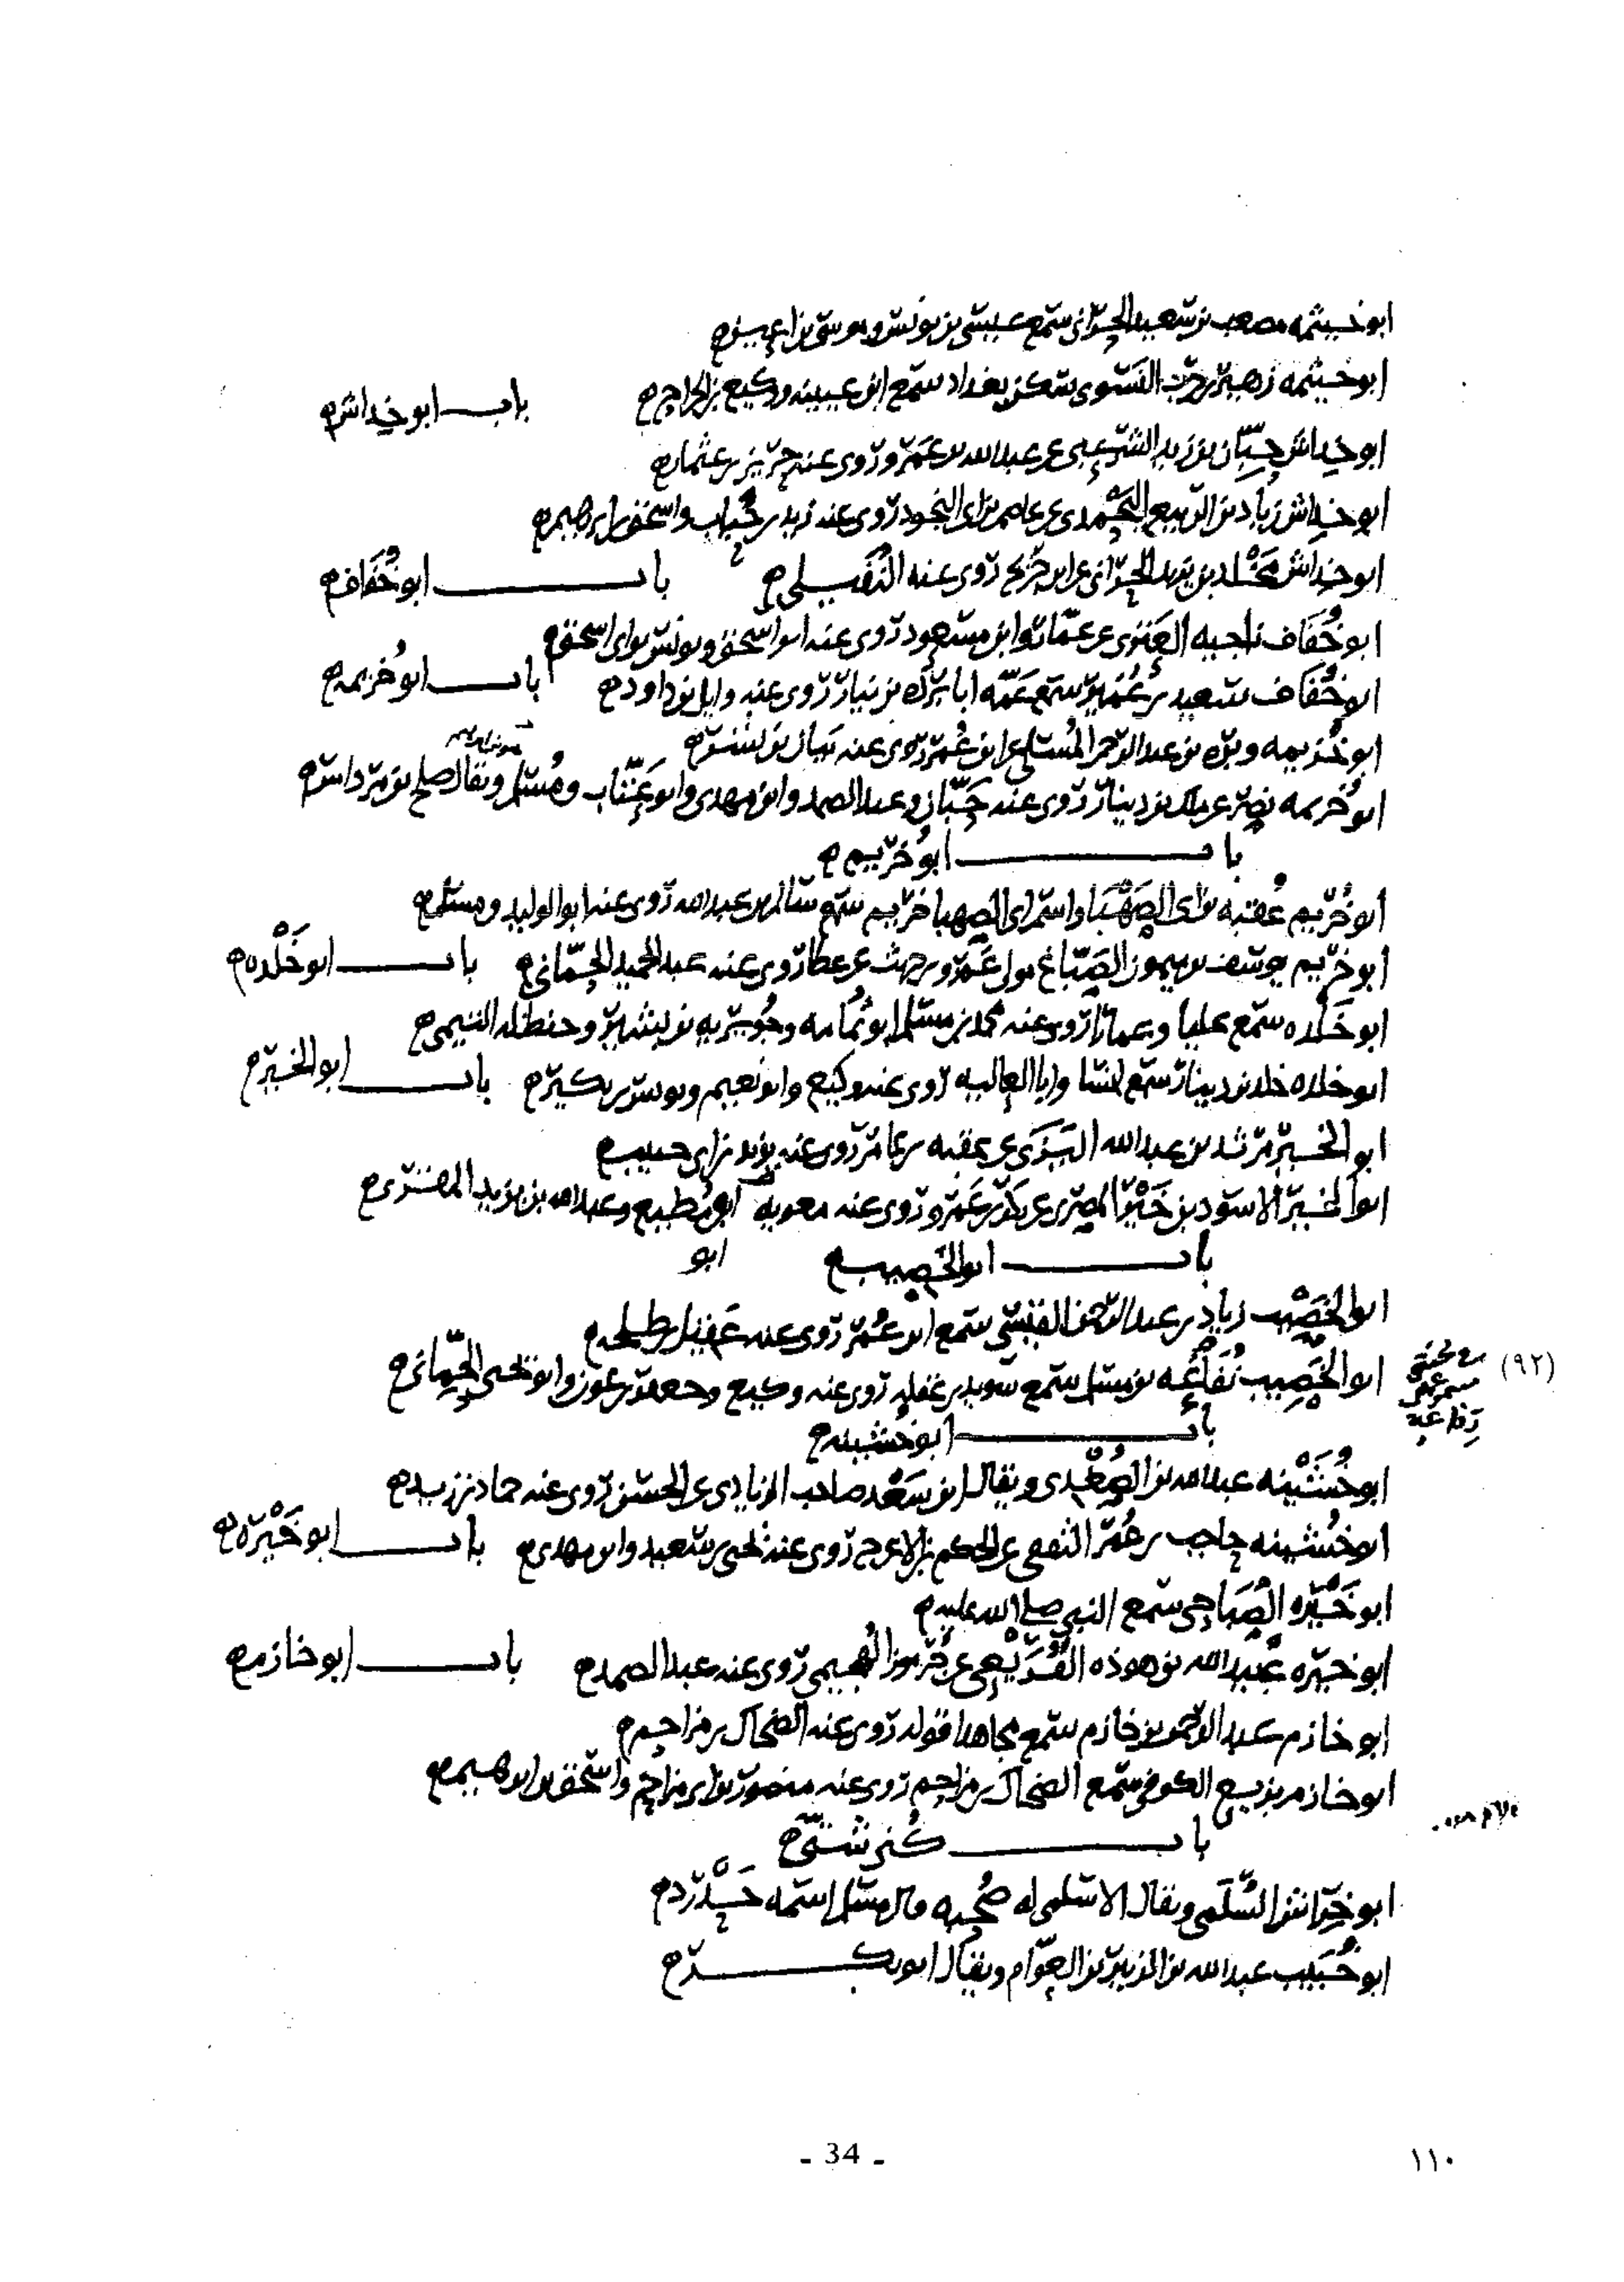 ابو خيثمه مصعب بن سعيد الحرانى سمع عيسى بن يونس وموسى بن اعين
ابو خيثمه زهير بن حرب النسوى سكن بغداد سمع ابن عيينه ووكيع بن الجراح
باب ابو خِداش
ابو خِداش حِبّان بن زيد الشرعبى عن عبد الله بن عَمرو روى عنه حريز بن عثمان
ابو خِداش زياد بن الربيع اليُحمدى عن عاصم بن ابى النجود روى عنه زيد بن حُباب واسحق بن ابرهيم
ابو خداش مَخْلد بن يزيد الحرّانى عن ابن جُريج روى عنه النُفَيلى
باب ابو خُفَاف
ابو خُفَاف ناجيه العَنَزى عن عمّار وابن مسعود روى عنه ابو اسحق ويونس بن ابى اسحق
ابو خُفَاف سعيد بن عُمَير سمع عَمّه ابا بُرده بن نيار روى عنه وايل بن داود
باب ابو خُزيمه
ابو خُزيمه وبره بن عبد الرحمن المُسلى عن ابن عُمر روى عنه بيان بن بشر
ابو خُزيمه نصر عن ملك بن دينار روى عنه حَبّان وعبد الصمد وابن مهدى وابو عَتّاب ومُسلم ويقال صلح بن مرداس
باب ابو خُريم
ابو خُرَيم عُقبه بن ابى الصَهْبَا واسم ابى الصهبا خريم سمع سالم بن عبد الله روى عنه ابو الوليد ومسلم
ابو خريم يوسف بن ميمون الصَبّاغ مولى عَمرو بن حريث عن عطا روى عنه عبد الحميد الحِمّانى
باب ابو خَلْده
ابو خَلْده سمع عليا وعمارا روى عنه محمد بن مسلم ابو ثُمَامه وجُويريه بن بشير وحنظله التيمى
ابو خلده خلد بن دينار سمع انسا وابا العاليه روى عنه وكيع وابو نعيم ويونس بن بكير
باب ابو الخير
ابو الخير مرثد بن عبد الله اليَزَنى عن عقبه بن عامر روى عنه يزيد بن ابى حبيب
ابو الخير الاسود بن خَيْر المصرى عن بكر بن عَمرو روى عنه معويه ابو مُطيع وعبد الله بن يزيد المقرى
باب ابو الخصيب
ابو
ابو الخَصِيْب زياد بن عبد الرحمن القيسى سمع ابن عُمر روى عنه عَقيل بن طلحه
ابو الخَصِيب نُفَاعَه بن مسلم سمع سويد بن غفله روى عنه وكيع وجعفر بن عون وابو يحيى الحِمّانى
(٩٢)
باب ابو خُشينه
ابو خُشَيْنه عبد الله بن الصُغْدى ويقال ابن سَعْد صاحب الزيادى عن الحسن روى عنه حماد بن زيد
ابو خُشينه حاجب بن عُمر الثقفى عن الحكم بن الاعرج روى عنه يحيى بن سعيد وابن مهدى
باب ابو خَيْره
ابو خَيْره الصُبَاحى سمع النبى صلى الله عليه
ابو خيره عُبيد الله بن هوذه القُرَيْعى عن جُرموز الهُجيمى روى عنه عبد الصمد
باب ابو خازم
ابو خازم عبد الرحمن بن خازم سمع مجاهدا قوله روى عنه الضحاك بن مزاحم
ابو خازم بزيع الكوفى سمع الضحاك بن مزاحم روى عنه منصور بن ابى مزاحم واسحق بن ابرهيم
باب كُنى شتّى
ابو خِراش السُّلَمى ويقال الاسلمى له صُحبه قال مسلم اسمه حَدْرد
ابو خُبَيب عبد الله بن الزبير بن العوّام ويقال ابو بكر
- 34 -
١١٠